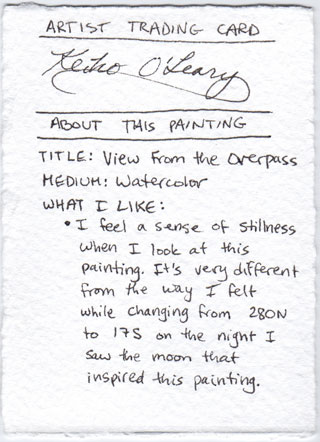 ARTIST TRADING CARD
Keiko O'Leary
ABOUT THIS PAINTING
TITLE: View from the Overpass
MEDIUM: Watercolor
WHAT I LIKE:
• I feel a sense of stillness
when I look at this
painting. It's very different
from the way I felt
while changing from 280N
to 17S on the night I
saw the moon that
inspired this painting.